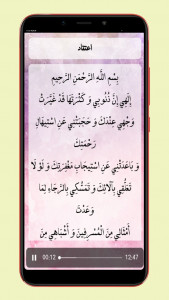 اعتقاد
بِسْمِ اللَّهِ الرَّحْمَنِ الرَّحِيمِ
إِلَهِي إِنَّ ذُنُوبِي وَ كَثْرَتَهَا قَدْ غَيَّرَتْ
وَجْهِي عِنْدَكَ وَ حَجَبَتْنِي عَنِ اسْتِيهَالِ
رَحْمَتِكَ
وَ بَاعَدَتْنِي عَنِ اسْتِيجَابِ مَغْفِرَتِكَ وَ لَوْ لَا
تَعَلُّقِي بِآلَائِكَ وَ تَمَسُّكِي بِالرَّجَاءِ لِمَا
وَعَدْتَ
أَمْثَالِي مِنَ الْمُسْرِفِينَ وَ أَشْبَاهِي مِنَ
00:12
12:47